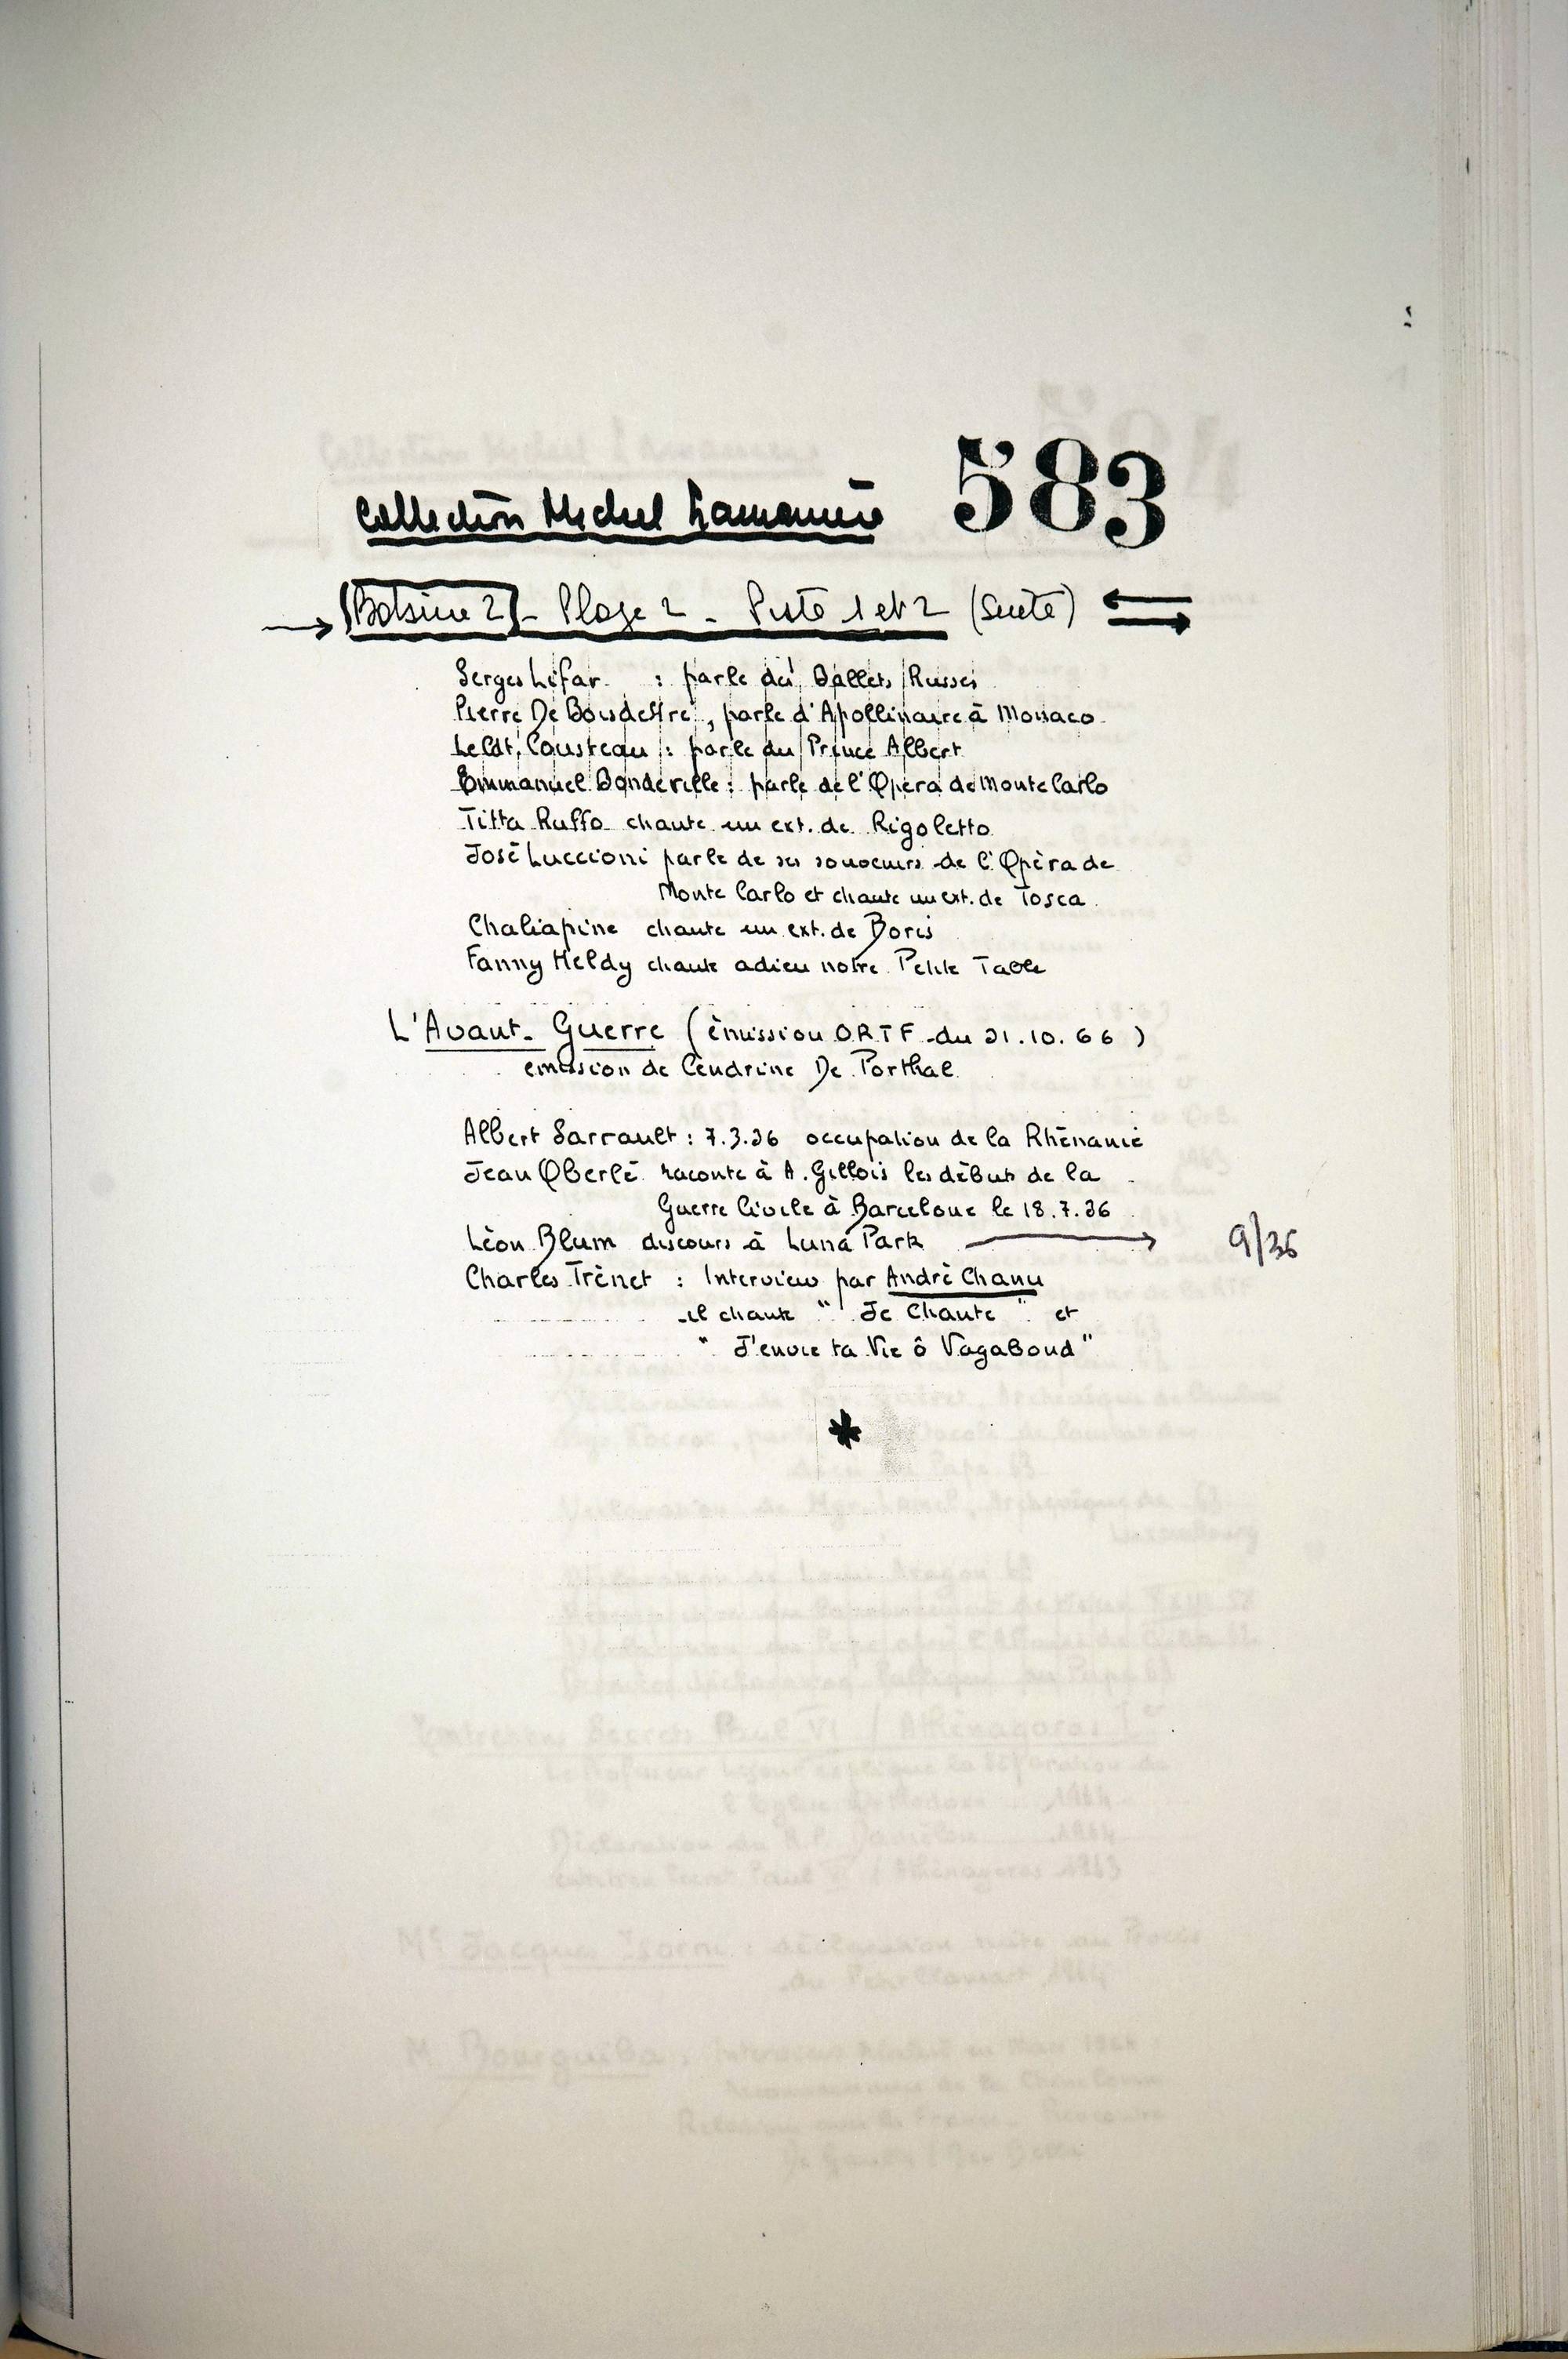 Collection Michel
583
Bobine 2 - Plage 2 - Piste 1 et 2 (Suite)
Serges Lifar : parle des Ballets Russes
Pierre De Boisdeffre, parle d'Apollinaire à Monaco
Le Cdt. Cousteau : parle du Prince Albert
Emmanuel Bondeville : parle de l'Opéra de Monte Carlo
Titta Ruffo chante un ext. de Rigoletto
José Luccioni parle de ses souvenirs de l'Opèra de
Monte Carlo et chante un ext. de Tosca.
Chaliapine chante un ext. de Boris
Fanny Heldy chante adieu notre Petite Table
L'Avant-Guerre (èmission ORTF du 31.10.66)
emission de Cendrine De Porthal
Albert Sarrault : 7.3.36 occupation de la Rhènanie
Jean Oberlè raconte à A. Gillois les dèbuts de la
Guerre Civile à Barcelone le 18.7.36
Lèon Blum discours à Luna Park → 9/36
Charles Trènet : Interview par Andrè Chanu
il chante " Je Chante " et
" J'envie ta Vie ô Vagabond "
*